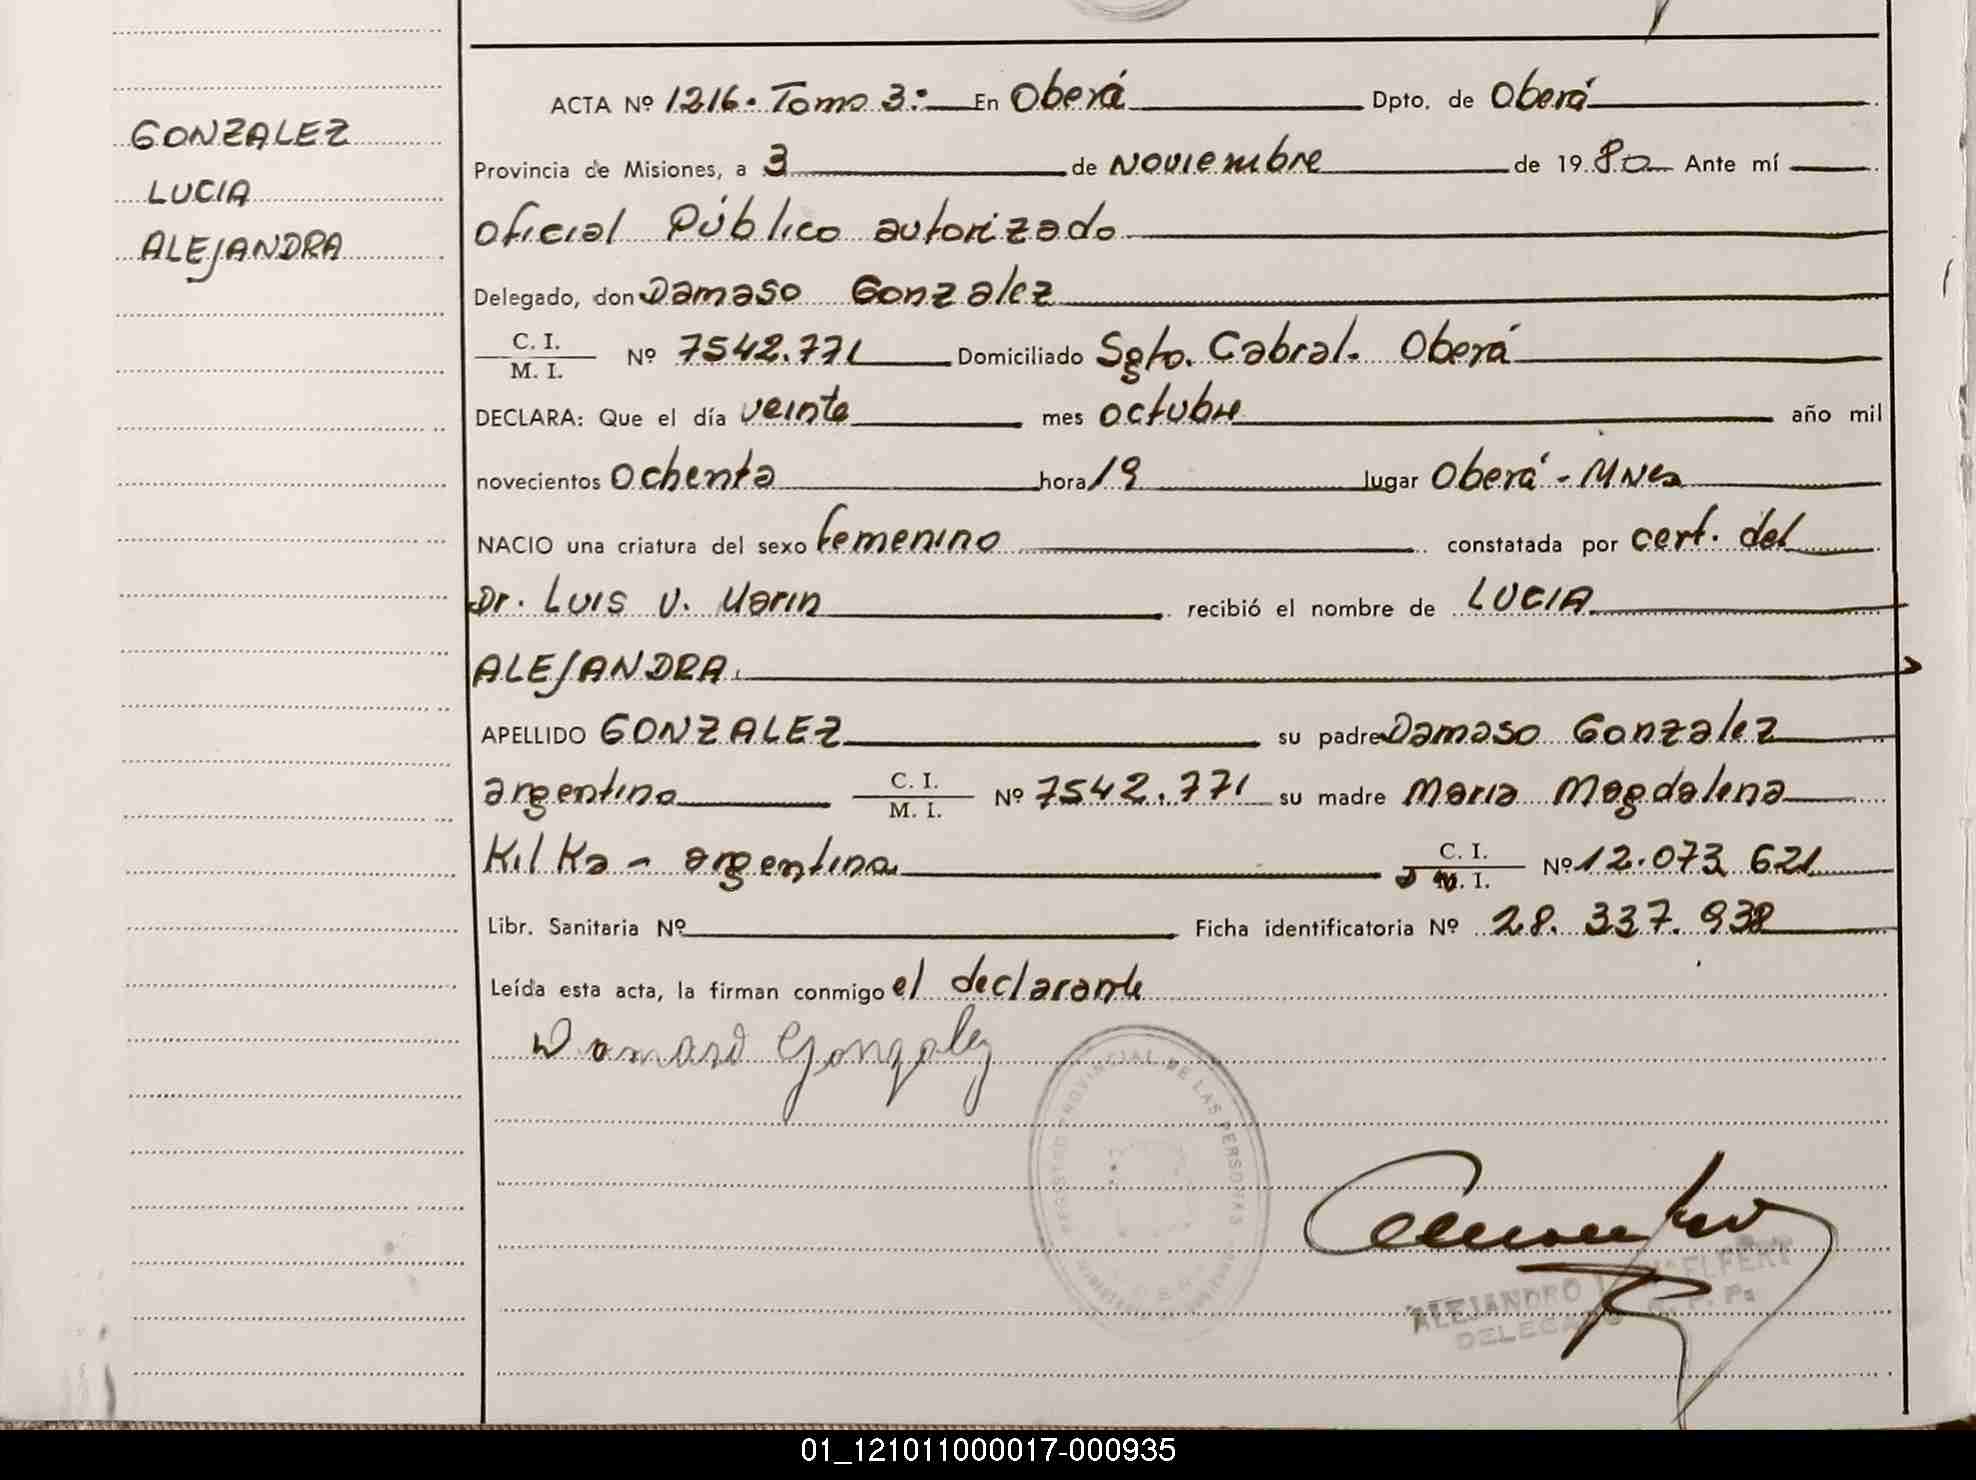 GONZALEZ
LUCIA
ALEJANDRA
ACTA Nº 1216. Tomo 3: En Oberá Dpto. de Oberá
Provincia de Misiones, a 3 de Noviembre de 1980 Ante mí
Oficial Público autorizado
Delegado, don Damaso Gonzalez
C. I.
M. I. Nº 7542.771 Domiciliado Sgto. Cabral. Oberá
DECLARA: Que el día veinte mes octubre año mil
novecientos ochenta hora 19 lugar Oberá - MNes
NACIO una criatura del sexo femenino constatada por cert. del
Dr. Luis V. Marin recibió el nombre de LUCIA
ALEJANDRA.
APELLIDO GONZALEZ su padre Damaso Gonzalez
argentino C. I. M. I. Nº 7542.771 su madre Maria Magdalena
Kilka - argentina C. I. M. I. Nº 12.073 621
Libr. Sanitaria Nº Ficha identificatoria Nº 28. 337. 938
Leída esta acta, la firman conmigo el declarante
Damaso Gonzalez
REGISTRO PROVINCIAL DE LAS PERSONAS
ALEJANDRO
DELEGADO R. P. P.
01_121011000017-000935